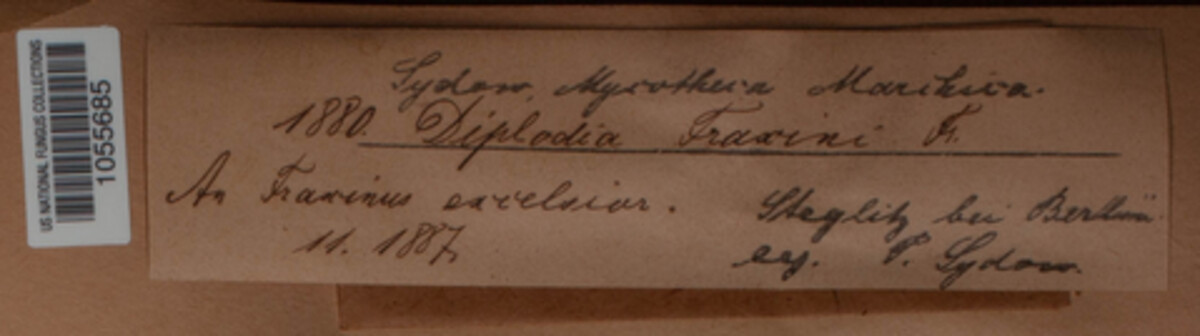 US NATIONAL FUNGUS COLLECTIONS
1055685
Sydow, Mycotheca Marchica.
1880. Diplodia Fraxini Fr.
An Fraxinus excelsior. Steglitz bei Berlin.
11. 1887. leg. P. Sydow.